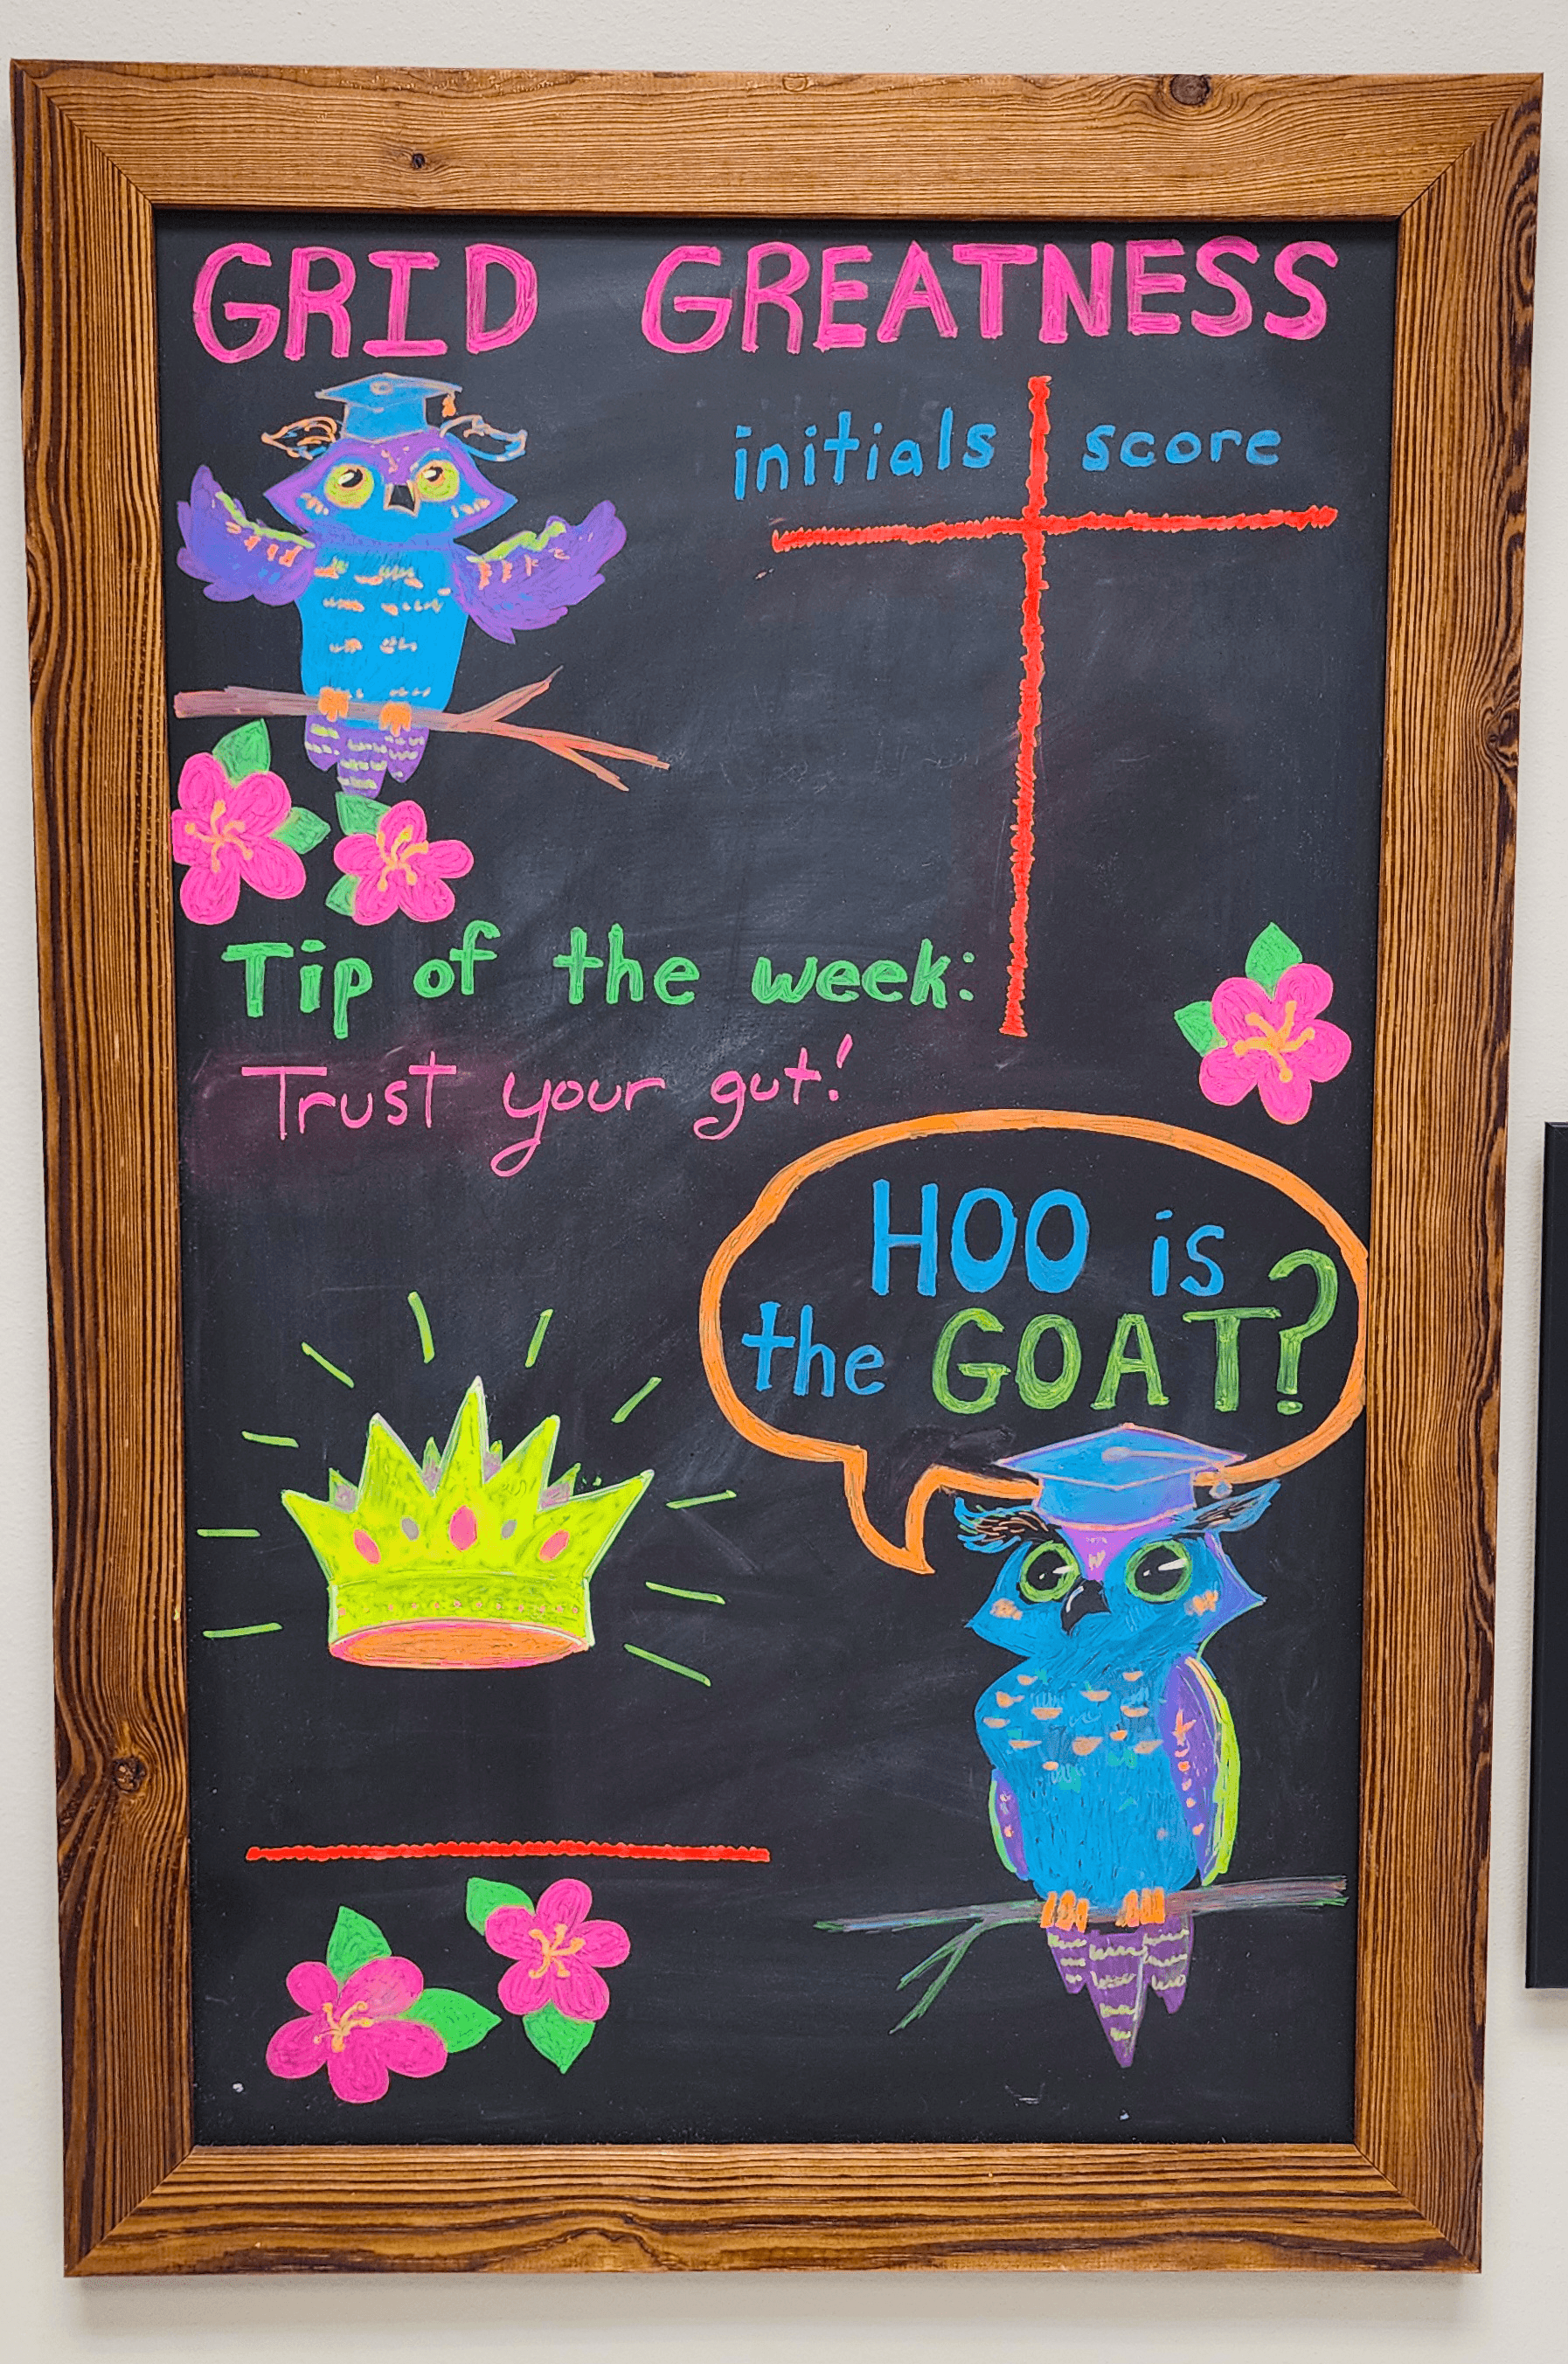 GRID GREATNESS
initials score
Tip of the week:
Trust your gut!
HOO is
the GOAT?